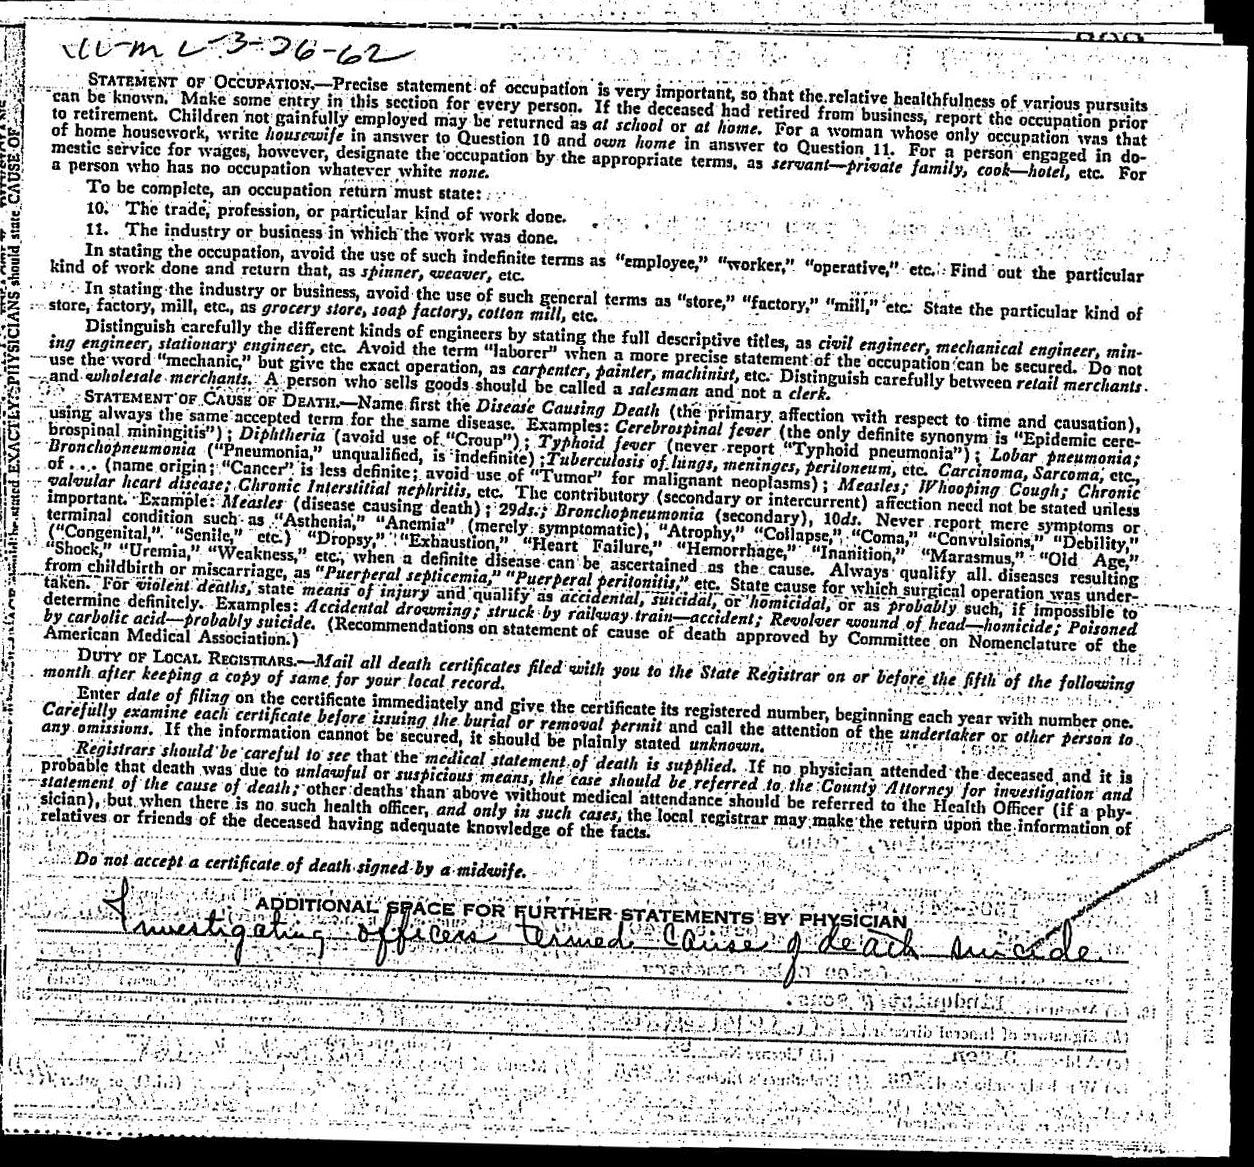 3-26-62
STATEMENT OF OCCUPATION.—Precise statement of occupation is very important, so that the relative healthfulness of various pursuits
can be known. Make some entry in this section for every person. If the deceased had retired from business, report the occupation prior
to retirement. Children not gainfully employed may be returned as at school or at home. For a woman whose only occupation was that
of home housework, write housewife in answer to Question 10 and own home in answer to Question 11. For a person engaged in do-
mestic service for wages, however, designate the occupation by the appropriate terms, as servant—private family, cook—hotel, etc. For
a person who has no occupation whatever white none.
To be complete, an occupation return must state:
10. The trade, profession, or particular kind of work done.
11. The industry or business in which the work was done.
In stating the occupation, avoid the use of such indefinite terms as "employee," "worker," "operative," etc. Find out the particular
kind of work done and return that, as spinner, weaver, etc.
In stating the industry or business, avoid the use of such general terms as "store," "factory," "mill," etc. State the particular kind of
store, factory, mill, etc., as grocery store, soap factory, cotton mill, etc.
Distinguish carefully the different kinds of engineers by stating the full descriptive titles, as civil engineer, mechanical engineer, min-
ing engineer, stationary engineer, etc. Avoid the term "laborer" when a more precise statement of the occupation can be secured. Do not
use the word "mechanic," but give the exact operation, as carpenter, painter, machinist, etc. Distinguish carefully between retail merchants
and wholesale merchants. A person who sells goods should be called a salesman and not a clerk.
STATEMENT OF CAUSE OF DEATH.—Name first the Disease Causing Death (the primary affection with respect to time and causation),
using always the same accepted term for the same disease. Examples: Cerebrospinal fever (the only definite synonym is "Epidemic cere-
brospinal miningitis"); Diphtheria (avoid use of "Croup"); Typhoid fever (never report "Typhoid pneumonia"); Lobar pneumonia;
Bronchopneumonia ("Pneumonia," unqualified, is indefinite); Tuberculosis of lungs, meninges, peritoneum, etc. Carcinoma, Sarcoma, etc.,
of . . . (name origin; "Cancer" is less definite; avoid use of "Tumor" for malignant neoplasms); Measles; Whooping Cough; Chronic
valvular heart disease; Chronic Interstitial nephritis, etc. The contributory (secondary or intercurrent) affection need not be stated unless
important. Example: Measles (disease causing death); 29ds.; Bronchopneumonia (secondary), 10ds. Never report mere symptoms or
terminal condition such as "Asthenia," "Anemia" (merely symptomatic), "Atrophy," "Collapse," "Coma," "Convulsions," "Debility,"
("Congenital," "Senile," etc.) "Dropsy," "Exhaustion," "Heart Failure," "Hemorrhage," "Inanition," "Marasmus," "Old Age,"
"Shock," "Uremia," "Weakness," etc., when a definite disease can be ascertained as the cause. Always qualify all diseases resulting
from childbirth or miscarriage, as "Puerperal septicemia," "Puerperal peritonitis," etc. State cause for which surgical operation was under-
taken. For violent deaths, state means of injury and qualify as accidental, suicidal, or homicidal, or as probably such, if impossible to
determine definitely. Examples: Accidental drowning; struck by railway train—accident; Revolver wound of head—homicide; Poisoned
by carbolic acid—probably suicide. (Recommendations on statement of cause of death approved by Committee on Nomenclature of the
American Medical Association.)
DUTY OF LOCAL REGISTRARS.—Mail all death certificates filed with you to the State Registrar on or before the fifth of the following
month after keeping a copy of same for your local record.
Enter date of filing on the certificate immediately and give the certificate its registered number, beginning each year with number one.
Carefully examine each certificate before issuing the burial or removal permit and call the attention of the undertaker or other person to
any omissions. If the information cannot be secured, it should be plainly stated unknown.
Registrars should be careful to see that the medical statement of death is supplied. If no physician attended the deceased and it is
probable that death was due to unlawful or suspicious means, the case should be referred to the County Attorney for investigation and
statement of the cause of death; other deaths than above without medical attendance should be referred to the Health Officer (if a phy-
sician), but when there is no such health officer, and only in such cases, the local registrar may make the return upon the information of
relatives or friends of the deceased having adequate knowledge of the facts.
Do not accept a certificate of death signed by a midwife.
ADDITIONAL SPACE FOR FURTHER STATEMENTS BY PHYSICIAN
Investigating officers termed cause of death suicide.
PHYSICIANS should state CAUSE OF